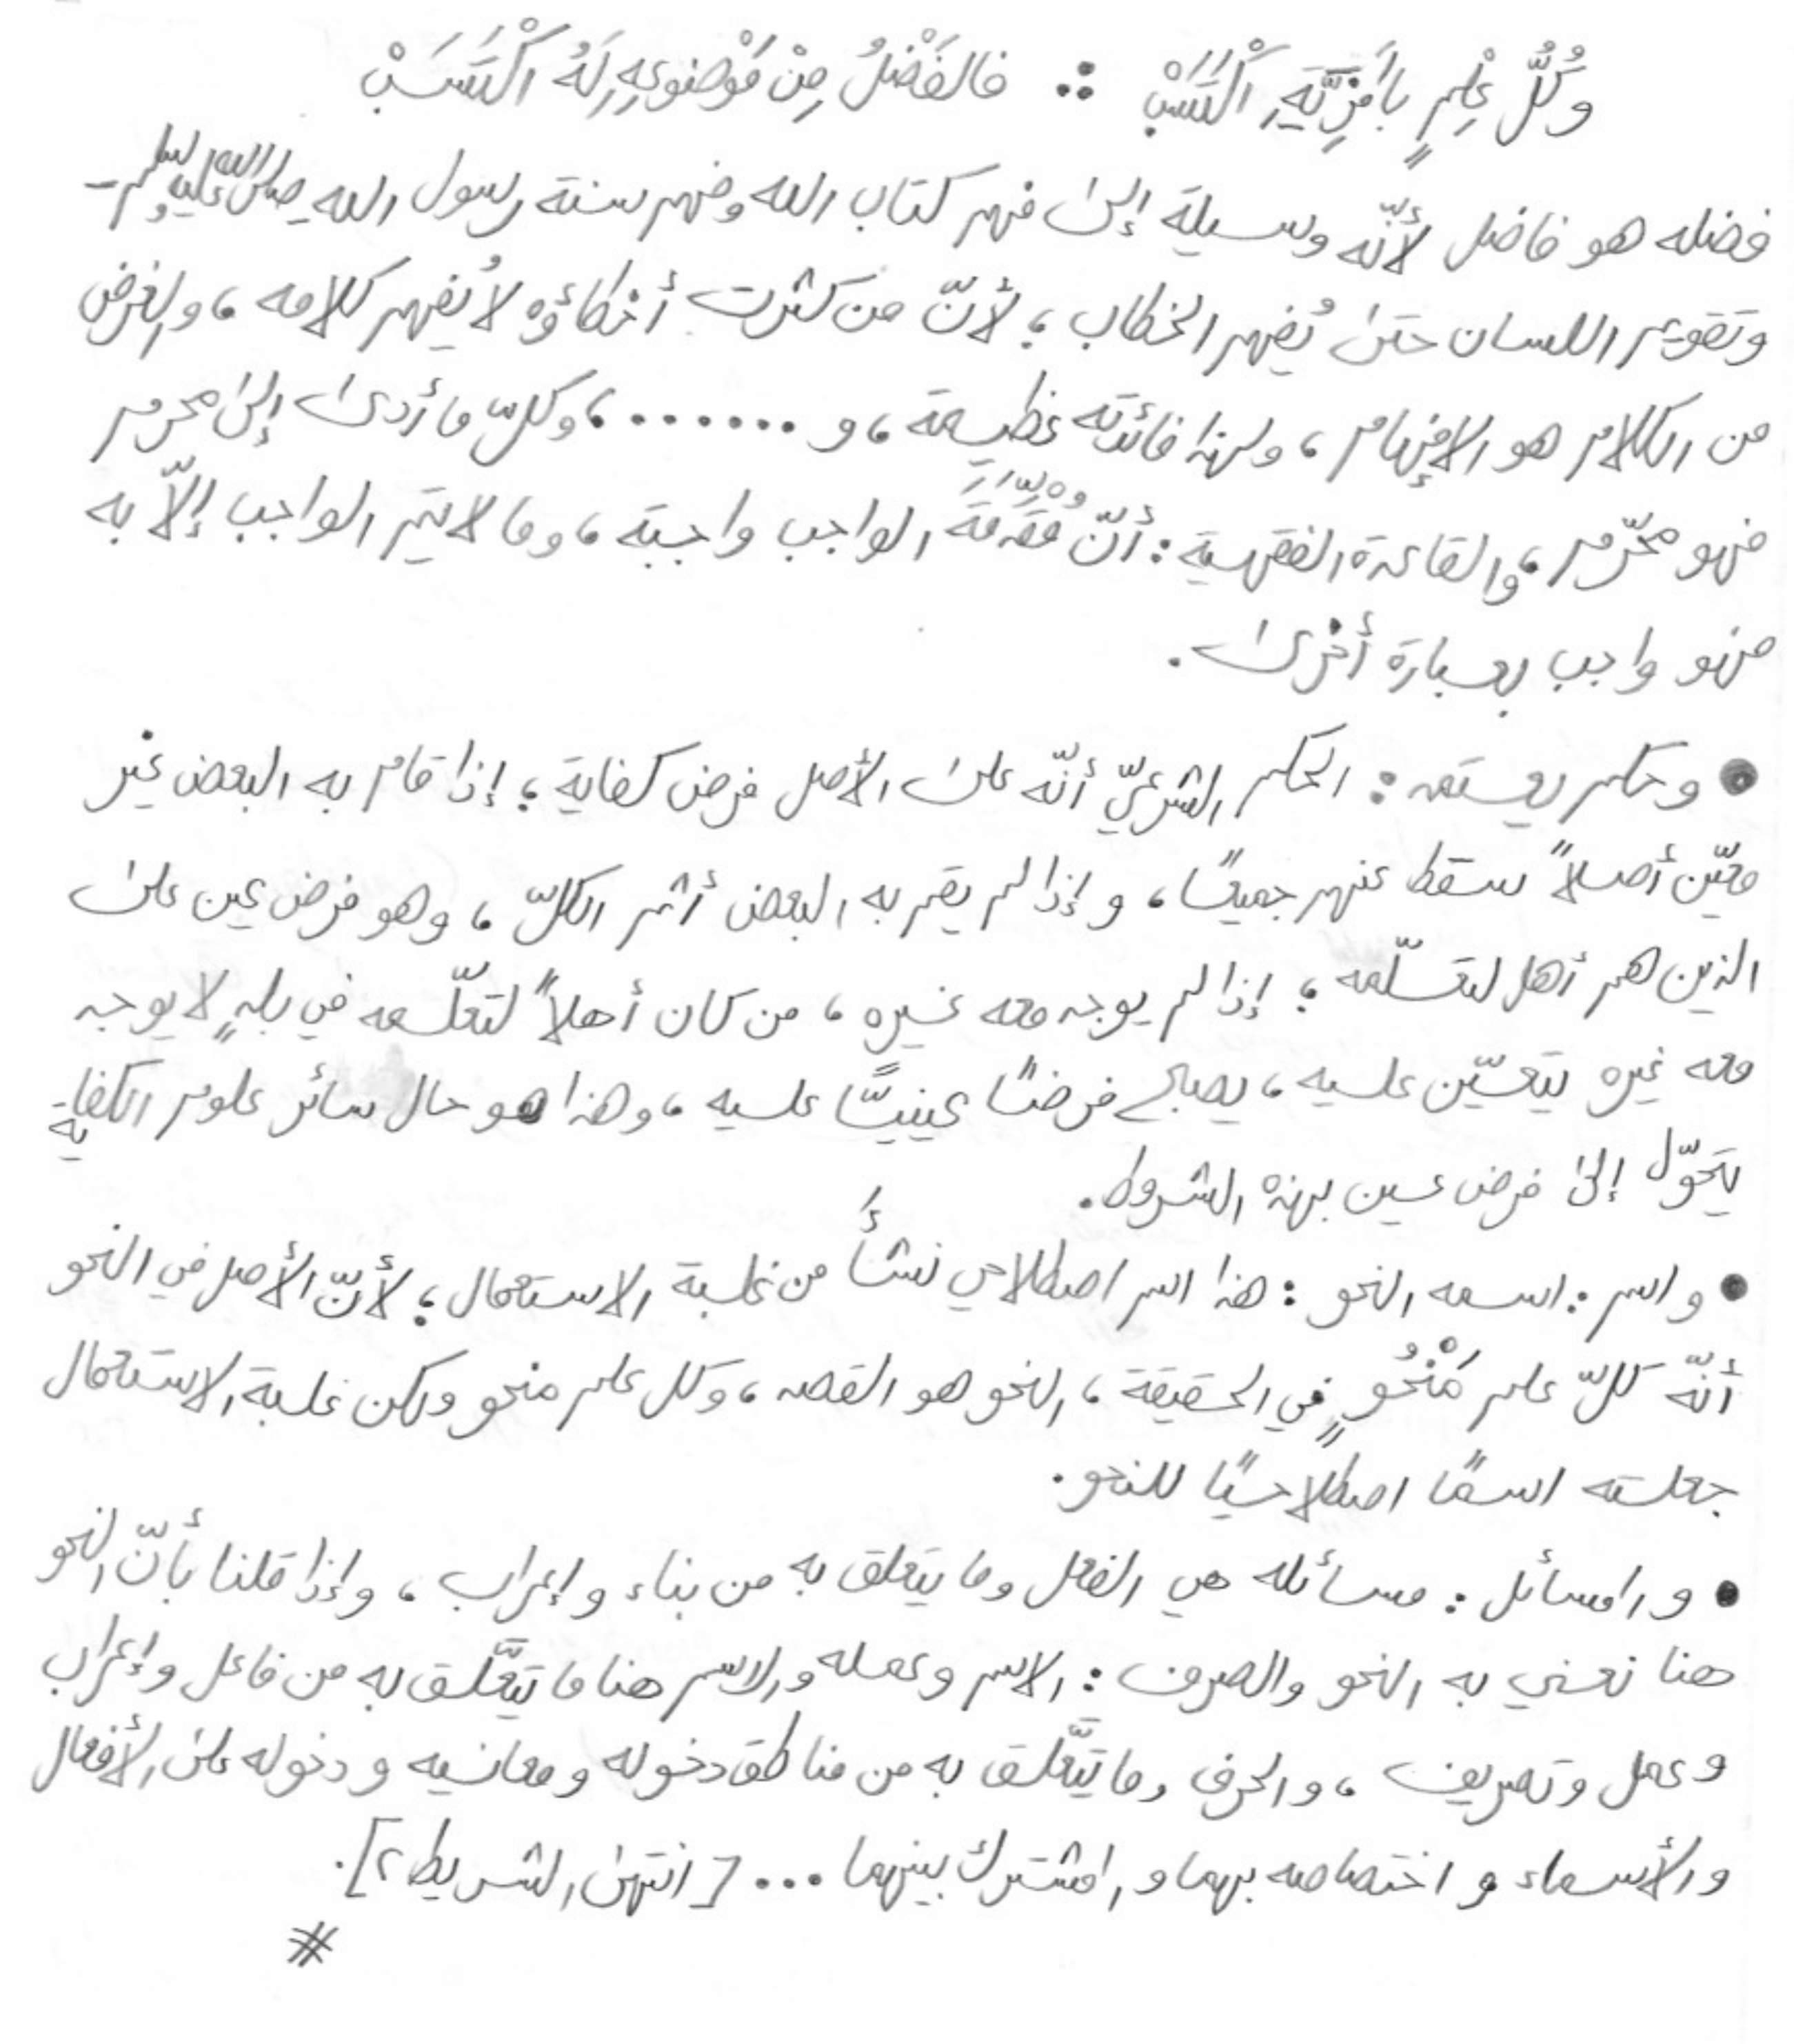 وَكُلُّ عِلْمٍ بِالمَزِيَّةِ اكْتَسَبْ ∴ فالفَضْلُ مِنْ مَوْضوعِهِ لَهُ اكْتَسَبْ
فضله هو فاضل لأنّه وسيلة إلى فهم كتاب الله وفهم سنة رسول الله صلى الله عليه وسلم -
وتقويم اللسان حتى يُفهم الخطاب؛ لأنّ من كثرت أخطاؤه لا يُفهم كلامه، والغرض
من الكلام هو الإفهام، ولهذا فائدته عظيمة، و ....... ، وكلّ ما أدى إلى محرم
فهو محرّم، والقاعدة الفقهية: أنّ مُقَدِّمَةَ الواجب واجبة، وما لا يتم الواجب إلّا به
فهو واجب بعبارة أخرى.
● وحكم يعتمد: الحكم الشرعيّ أنّه على الأصل فرض كفاية؛ إذا قام به البعض غير
معيّن أصلاً سقط عنهم جميعًا، وإذا لم يقم به البعض أثم الكلّ، وهو فرض عين على
الذين هم أهل لتعلّمه؛ إذا لم يوجد معه غيره، من كان أهلاً لتعلّمه في بلدٍ لا يوجد
معه غيره يتعيّن عليه، يصبح فرضًا عينيًّا عليه، وهذا هو حال سائر علوم الكفاية
يتحوّل إلى فرض عين بهذه الشروط.
● واسم: اسمه النحو: هذا اسم اصطلاحي نشأَ من غلبة الاستعمال؛ لأنّ الأصل في النحو
أنّه كلّ علم مَنْحُوٍ في الحقيقة، النحو هو القصد، وكل علم منحو ولكن غلبة الاستعمال
جعلته اسمًا اصطلاحيًا للنحو.
● والمسائل: مسائله هي الفعل وما يتعلق به من بناء وإعراب، وإذا قلنا بأنّ النحو
هنا نعني به النحو والصرف: الاسم وعمله والاسم هنا ما يتعَّلق به من فاعل وإعراب
وعمل وتصريف، والحرف وما يتعَّلق به من مناطق دخوله ومعانيه ودخوله على الأفعال
والأسماء واختصاصه بهما والمشترك بينهما ... [انتهى الشريط ٢].
#